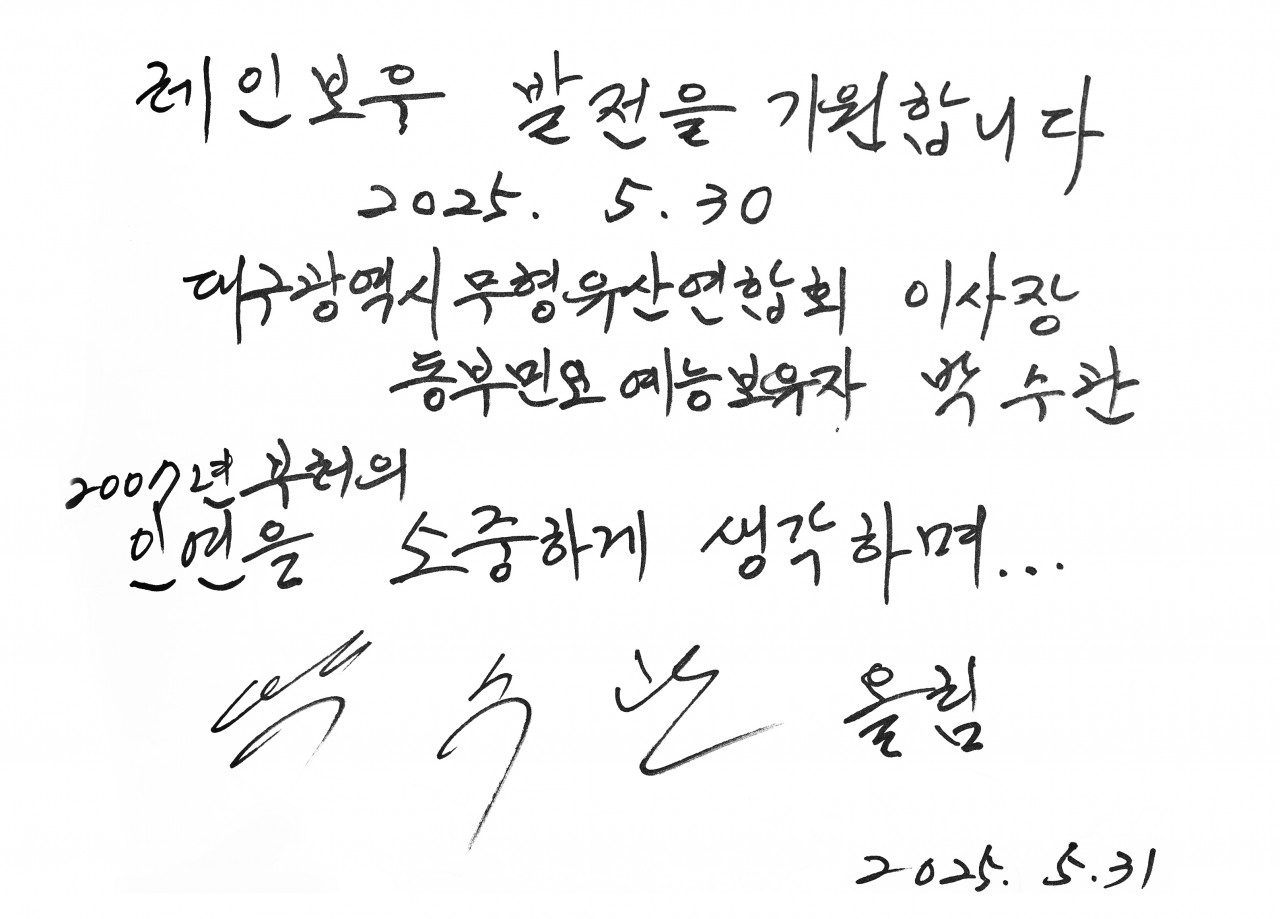 레인보우 발전을 기원합니다
2025. 5. 30
대구광역시무형유산연합회 이사장
동부민요 예능보유자 박수관
2007년 부허의
인연을 소중하게 생각하며...
박수관 올림
2025. 5.31